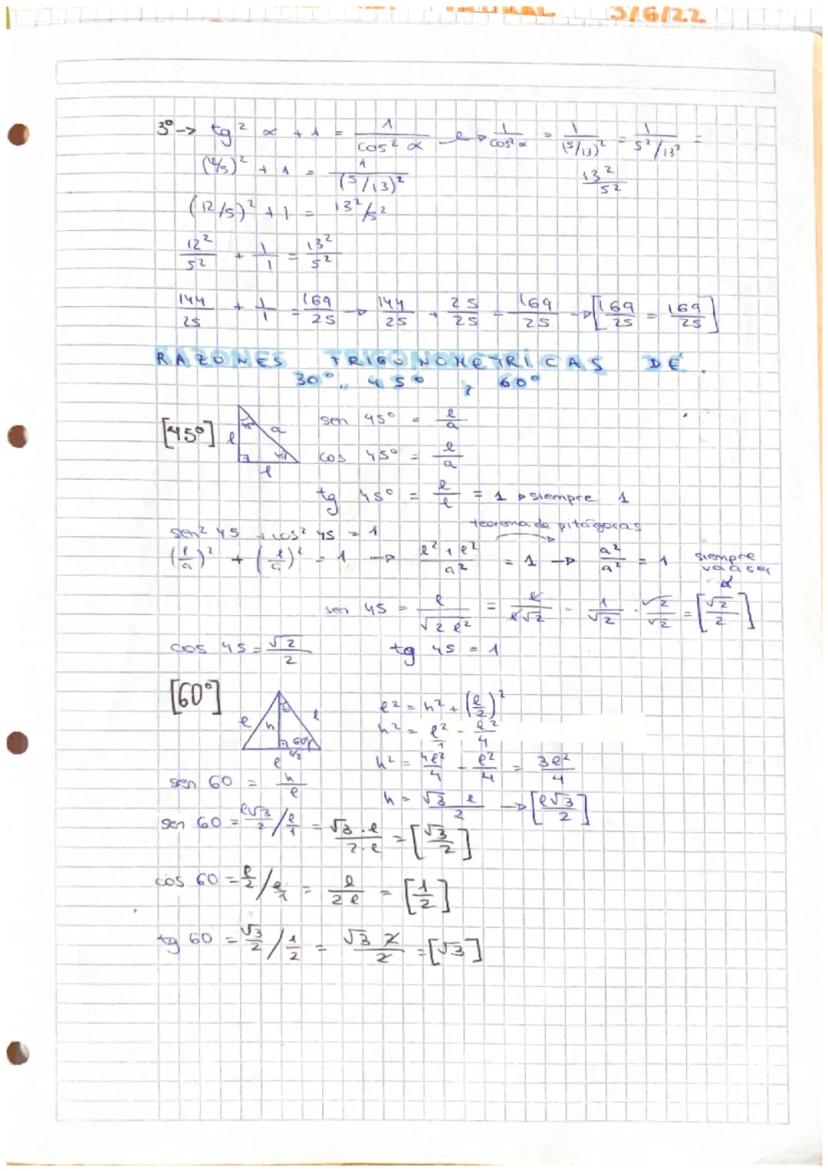 3/6/22
3º → tg² α + 1 = 1/cos² α → 1/cos² α = 1/(5/13)² = 1/5²/13² = 13²/5²
(12/5)² + 1 = 1/(5/13)²
(12/5)² + 1 = 13²/5²
12²/5² + 1/1 = 13²/5²
144/25 + 1/1 = 169/25 → 144/25 + 25/25 = 169/25 → [169/25 = 169/25]
RAZONES TRIGONOMÉTRICAS DE
30º, 45º y 60º
[45º] l a l 45
sen 45º = l/a
cos 45º = l/a
tg 45º = l/l = 1 → siempre 1
teorema de pitágoras
sen² 45 + cos² 45 = 1
(l/a)² + (l/a)² = 1 → l² + l²/a² = 1 → a²/a² = 1 siempre
va a ser
sen 45 = l/√2 l² = l/l√2 = 1/√2 · √2/√2 = [√2/2]
cos 45 = √2/2 tg 45 = 1
[60º] l h l 60º l/2 l
l² = h² + (l/2)²
h² = l²/1 - l²/4
h² = 4l²/4 - l²/4 = 3l²/4
sen 60 = h/l
h = √3 l/2 → [l√3/2]
sen 60 = l√3/2 / l/1 = √3 · l/2 · l = [√3/2]
cos 60 = l/2 / l/1 = l/2 l = [1/2]
tg 60 = √3/2 / 1/2 = √3 2/2 = [√3]